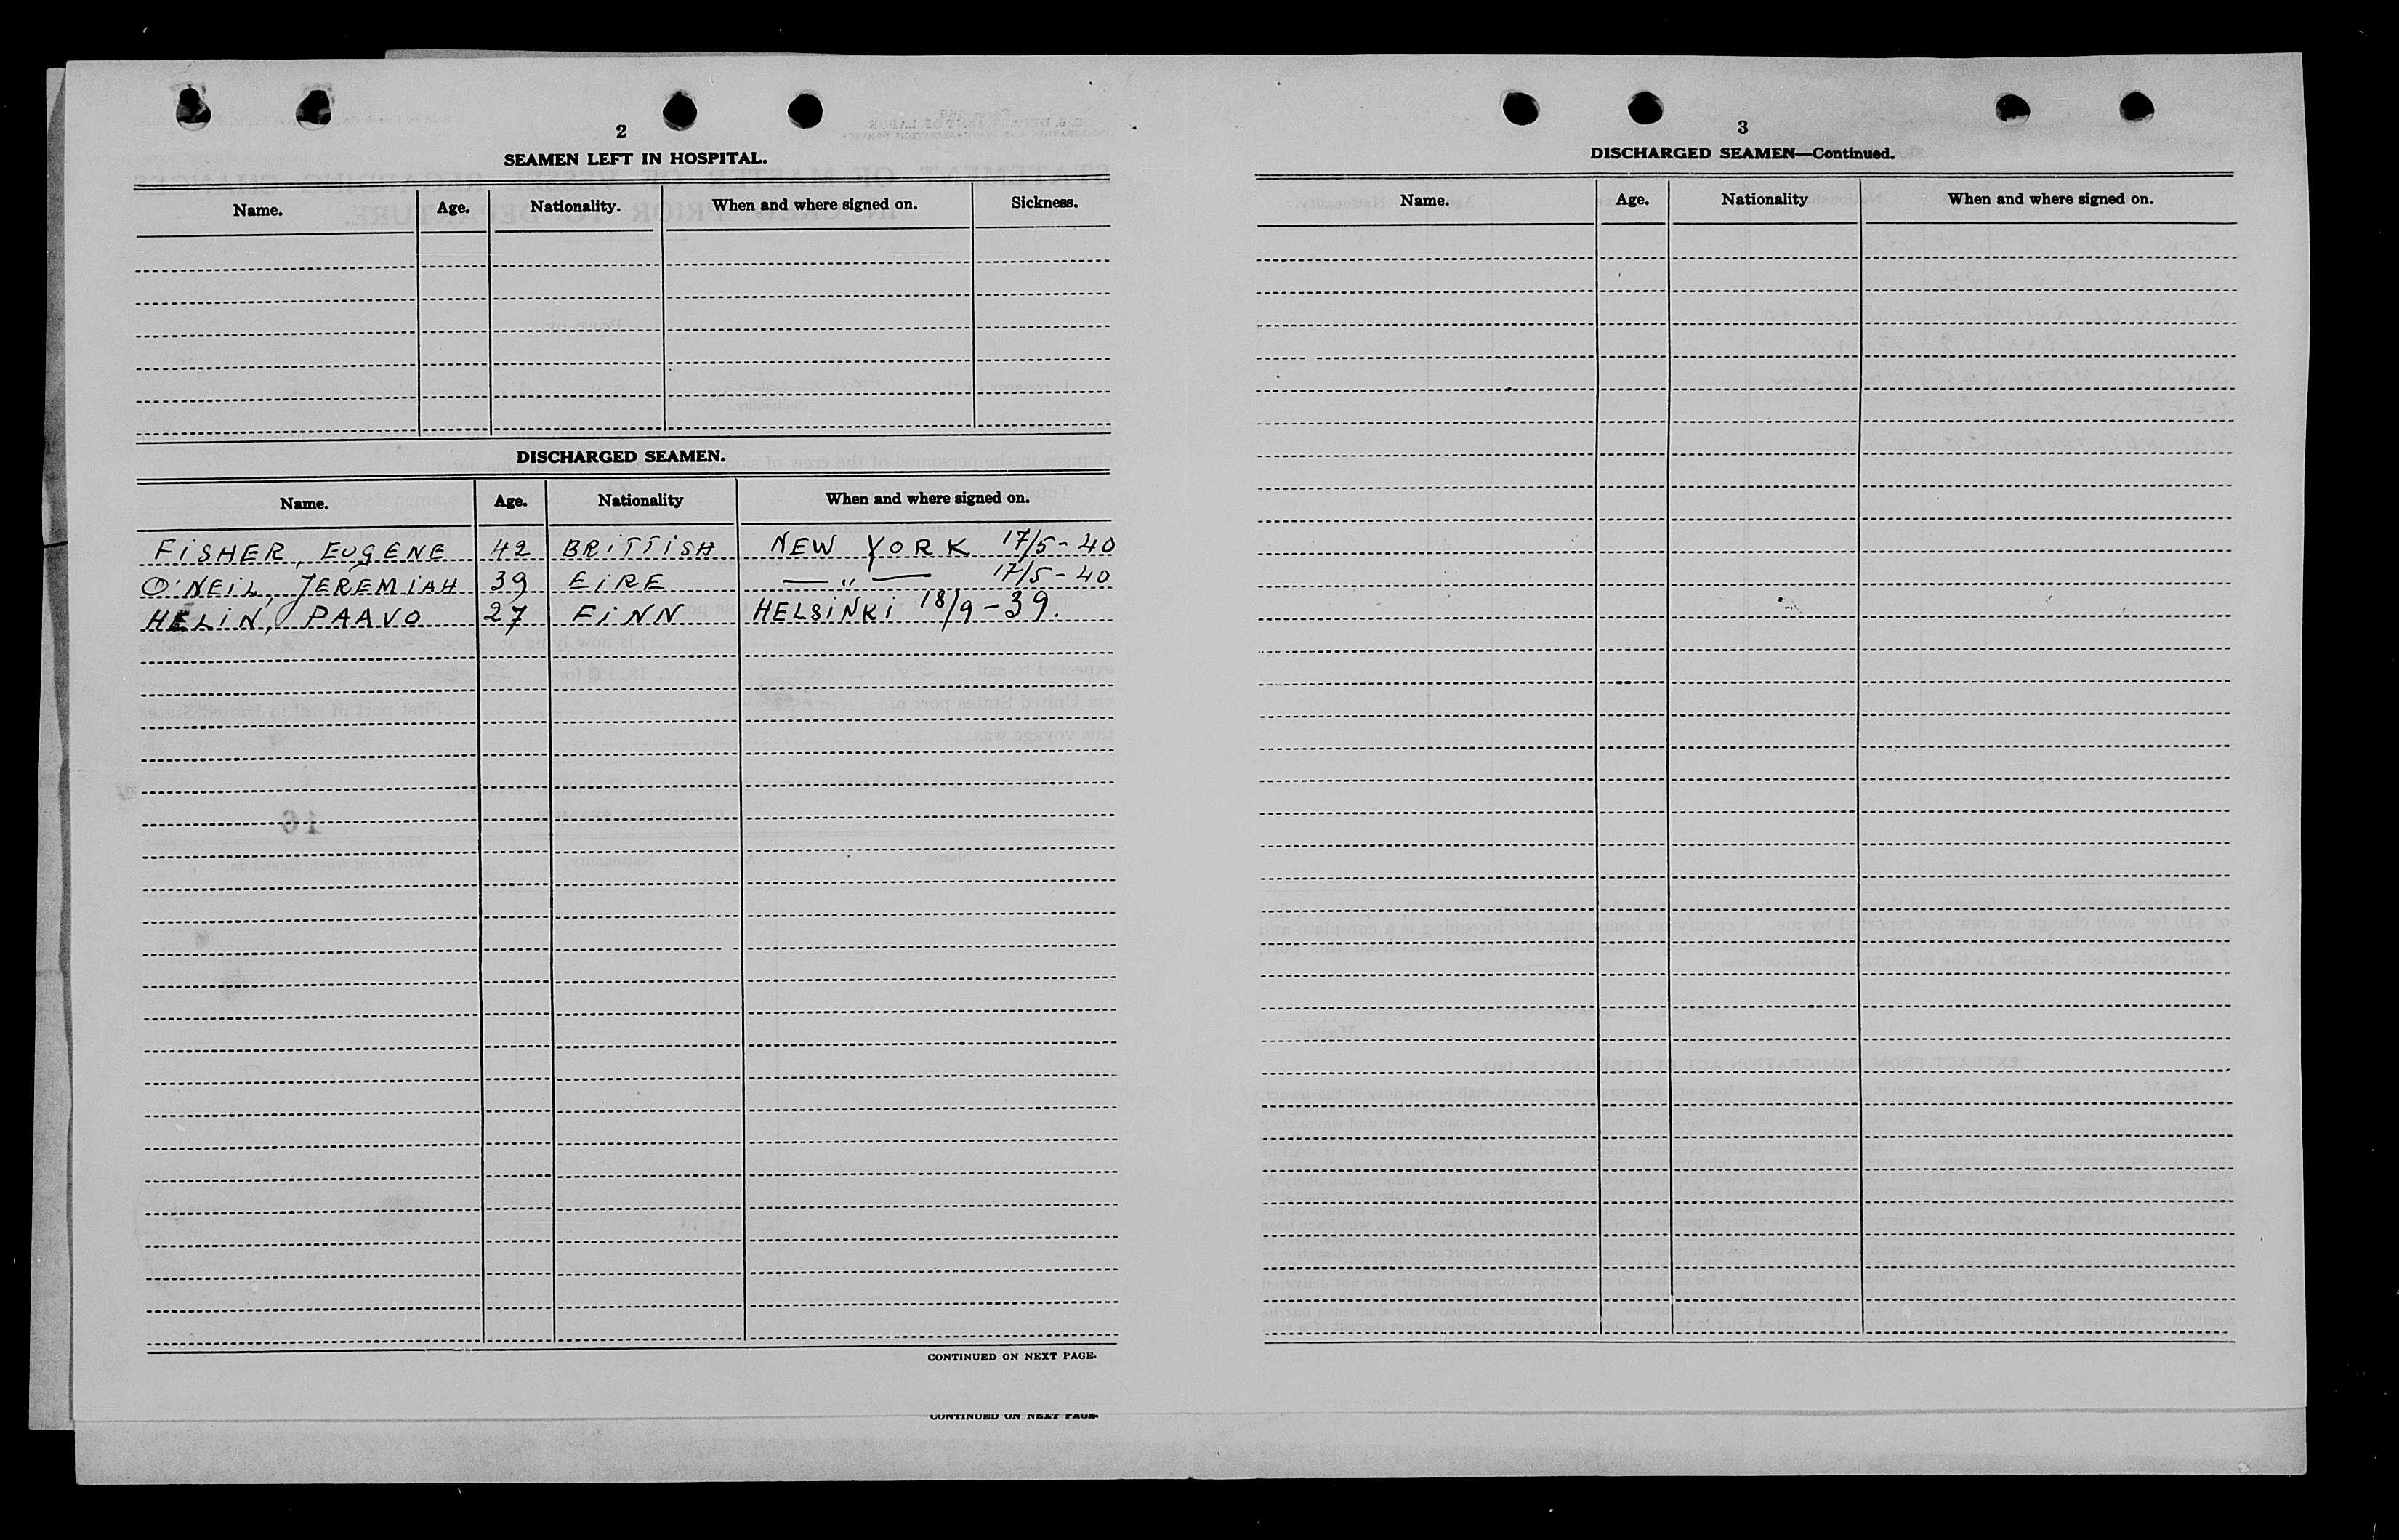 2
SEAMEN LEFT IN HOSPITAL.
Name. Age. Nationality. When and where signed on. Sickness.
DISCHARGED SEAMEN.
Name. Age. Nationality When and where signed on.
FISHER, EUGENE 42 BRITTISH NEW YORK 17/5-40
O'NEIL, JEREMIAH 39 EIRE — " — 17/5-40
HELIN, PAAVO 27 FINN HELSINKI 18/9-39.
CONTINUED ON NEXT PAGE.
CONTINUED ON NEXT PAGE.
3
DISCHARGED SEAMEN—Continued.
Name. Age. Nationality When and where signed on.